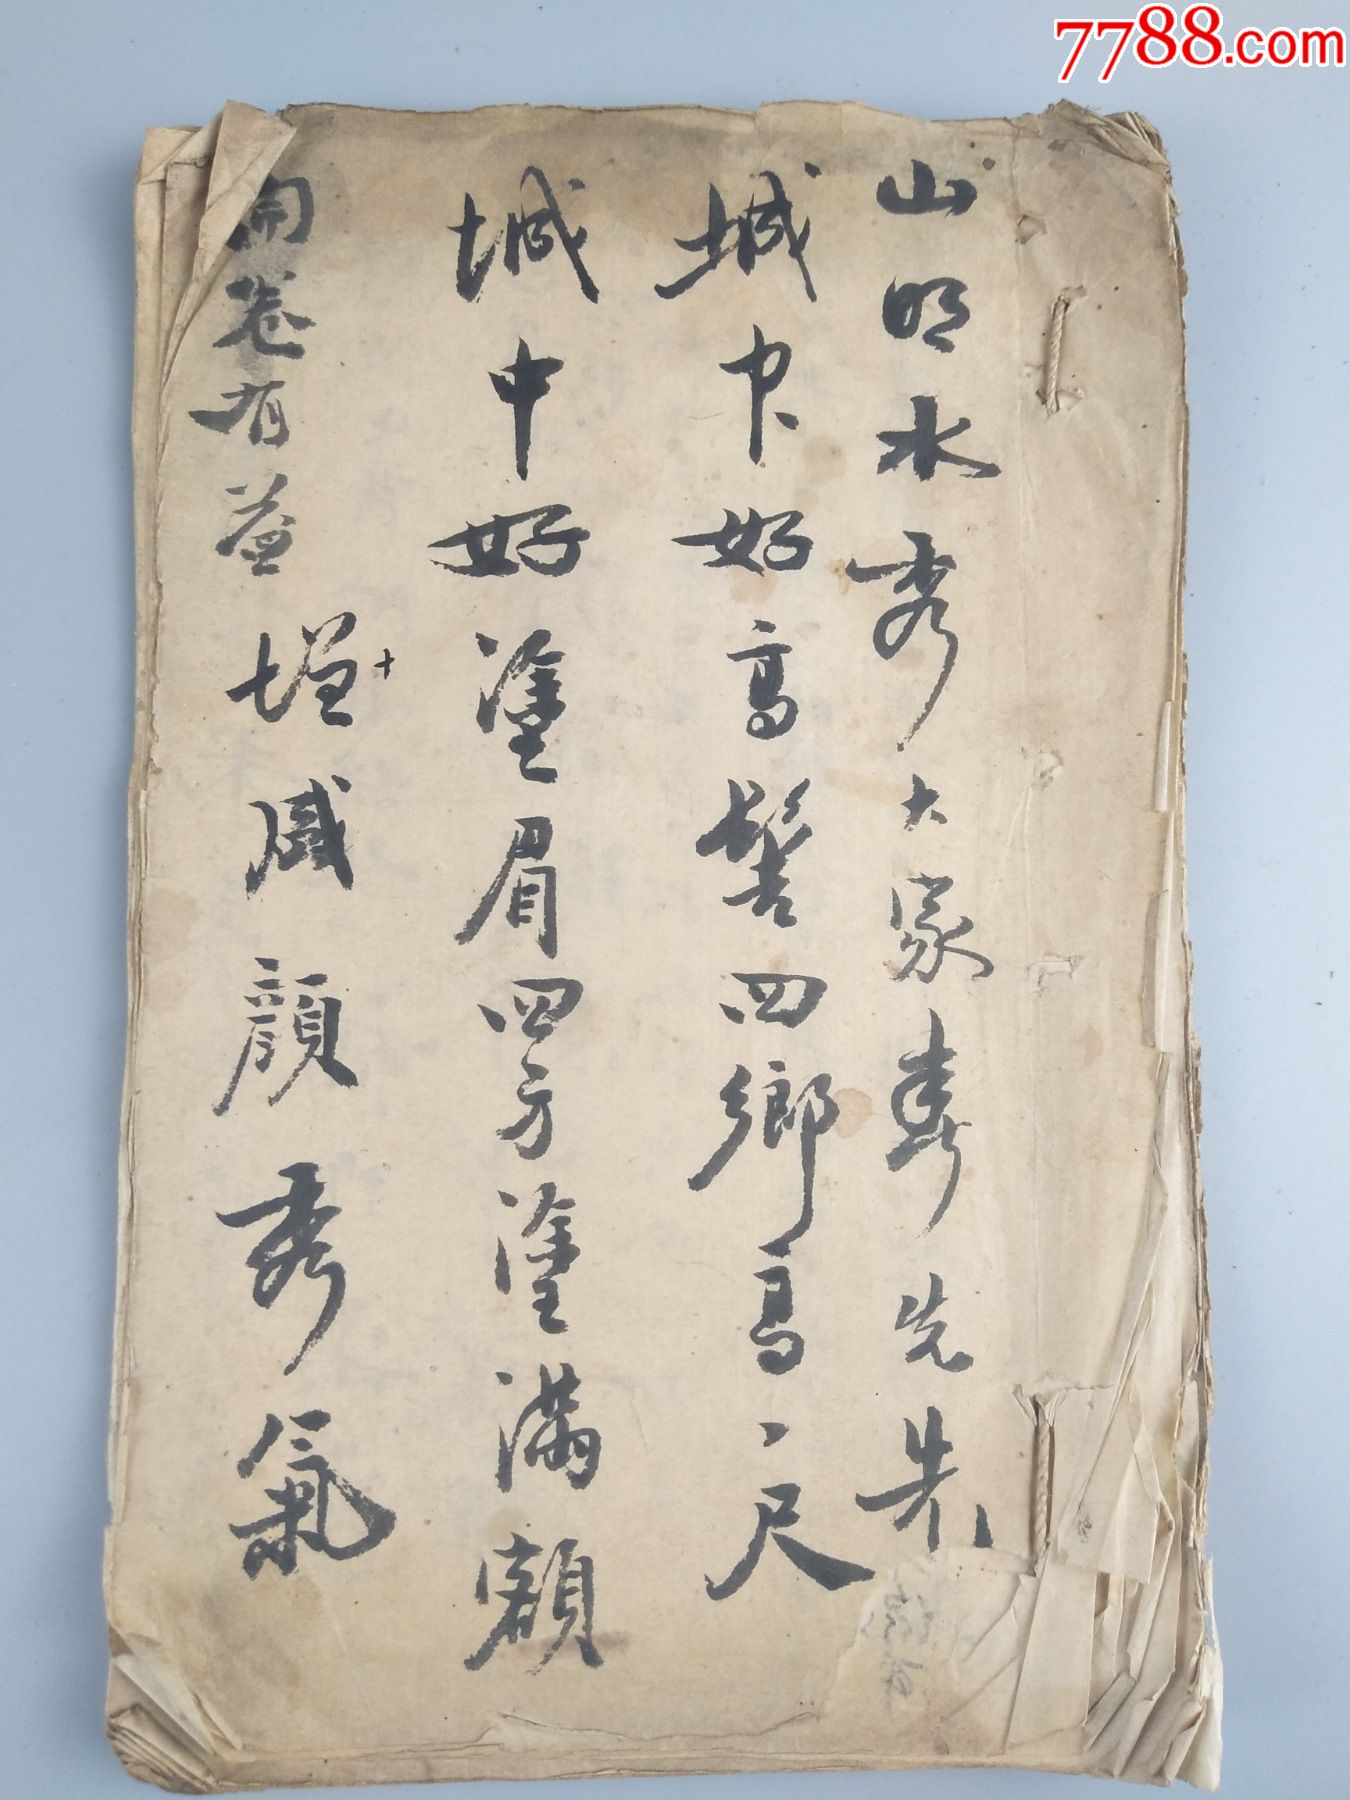 7788.com
山明水秀大家壽先
城中好高髻四鄉高一尺
城中好塗眉四方塗滿額
開卷有益
增顏秀氣